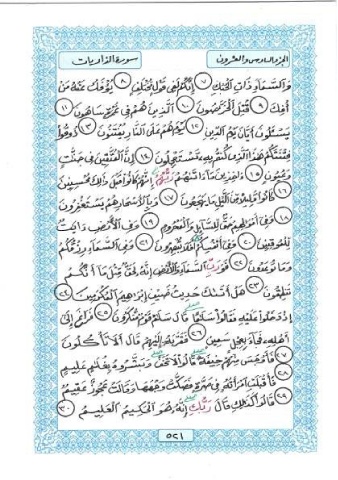 الجزء السادس والعشرون
سورة الذاريات
والسماء ذات الحبك ٧ إنكم لفي قول مختلف ٨ يؤفك عنه من
أفك ٩ قتل الخرصون ١٠ الذين هم في غمرة ساهون ١١
يسئلون أيان يوم الدين ١٢ يوم هم على النار يفتنون ١٣ ذوقوا
فتنتكم هذا الذي كنتم به تستعجلون ١٤ إن المتقين في جنت
وعيون ١٥ ءاخذين ما ءاتىهم ربهم إنهم كانوا قبل ذلك محسنين
١٦ كانوا قليلا من اليل ما يهجعون ١٧ وبالأسحار هم يستغفرون
١٨ وفي أموالهم حق للسائل والمحروم ١٩ وفي الأرض ءايت
للموقنين ٢٠ وفي أنفسكم أفلا تبصرون ٢١ وفي السماء رزقكم
وما توعدون ٢٢ فورب السماء والأرض إنه لحق مثل ما أنكم
تنطقون ٢٣ هل أتىك حديث ضيف إبراهيم المكرمين ٢٤
إذ دخلوا عليه فقالوا سلما قال سلم قوم منكرون ٢٥ فراغ إلى
أهله فجاء بعجل سمين ٢٦ فقربه إليهم قال ألا تأكلون
٢٧ فأوجس منهم خيفة قالوا لا تخف وبشروه بغلم عليم ٢٨
فأقبلت امرأته في صرة فصكت وجهها وقالت عجوز عقيم
٢٩ قالوا كذلك قال ربك إنه هو الحكيم العليم ٣٠
٥٢١